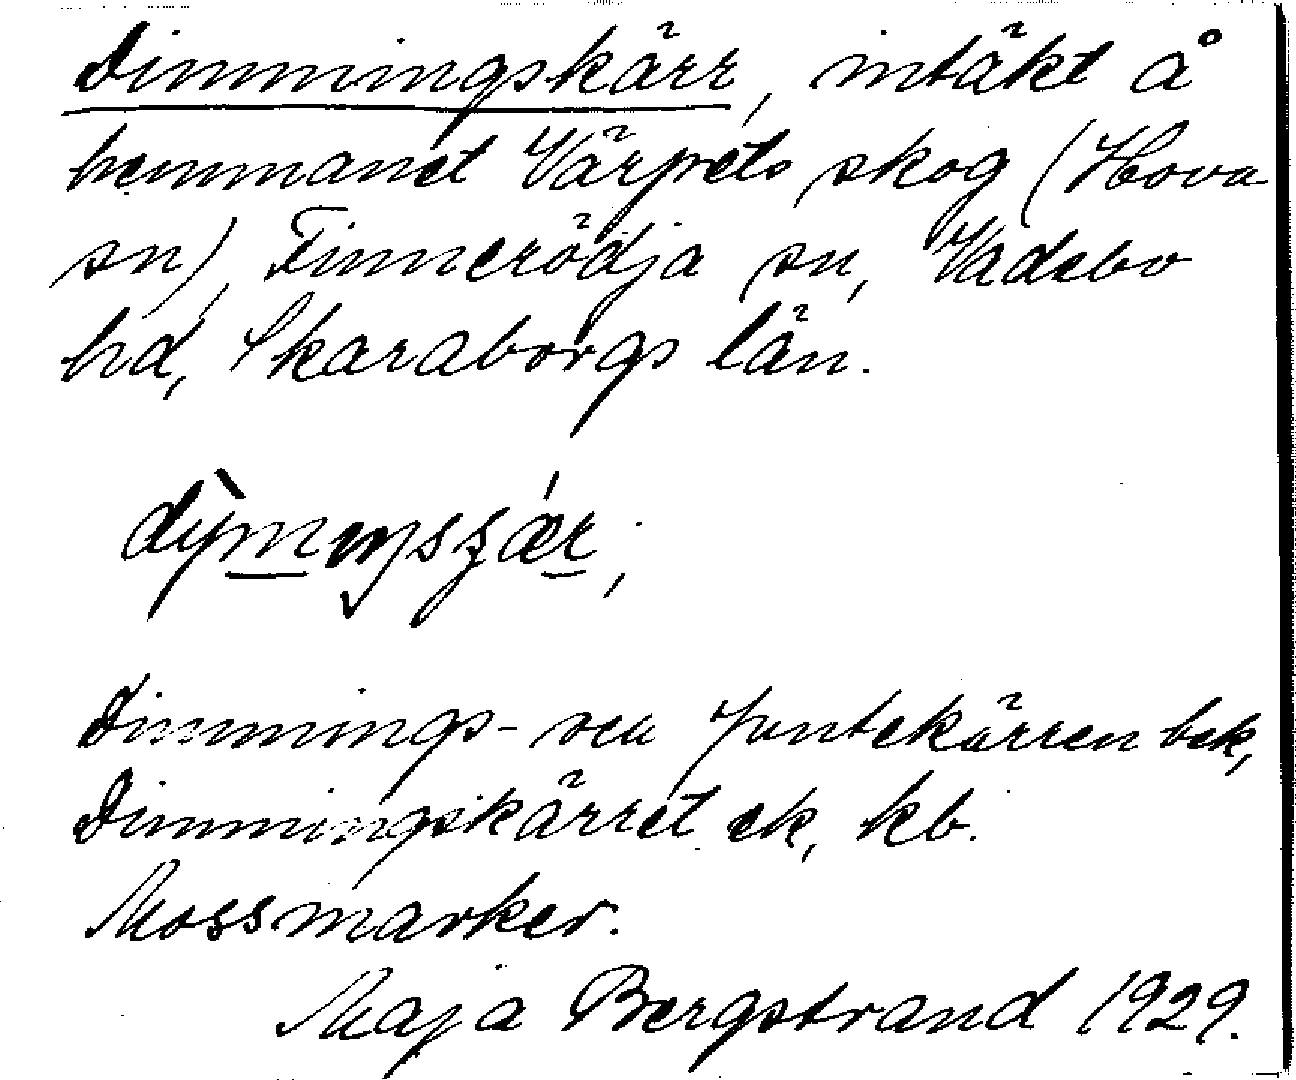 Dimmingskärr, intäkt å
hemmanet Värpets skog (Hova
sn), Finnerödja sn, Vadsbo
hd, Skaraborgs län.
Dimmings- ock Juntekärren bek,
Dimmingskärret ek, kb.
Mossmarker.
Maja Bergstrand 1929.